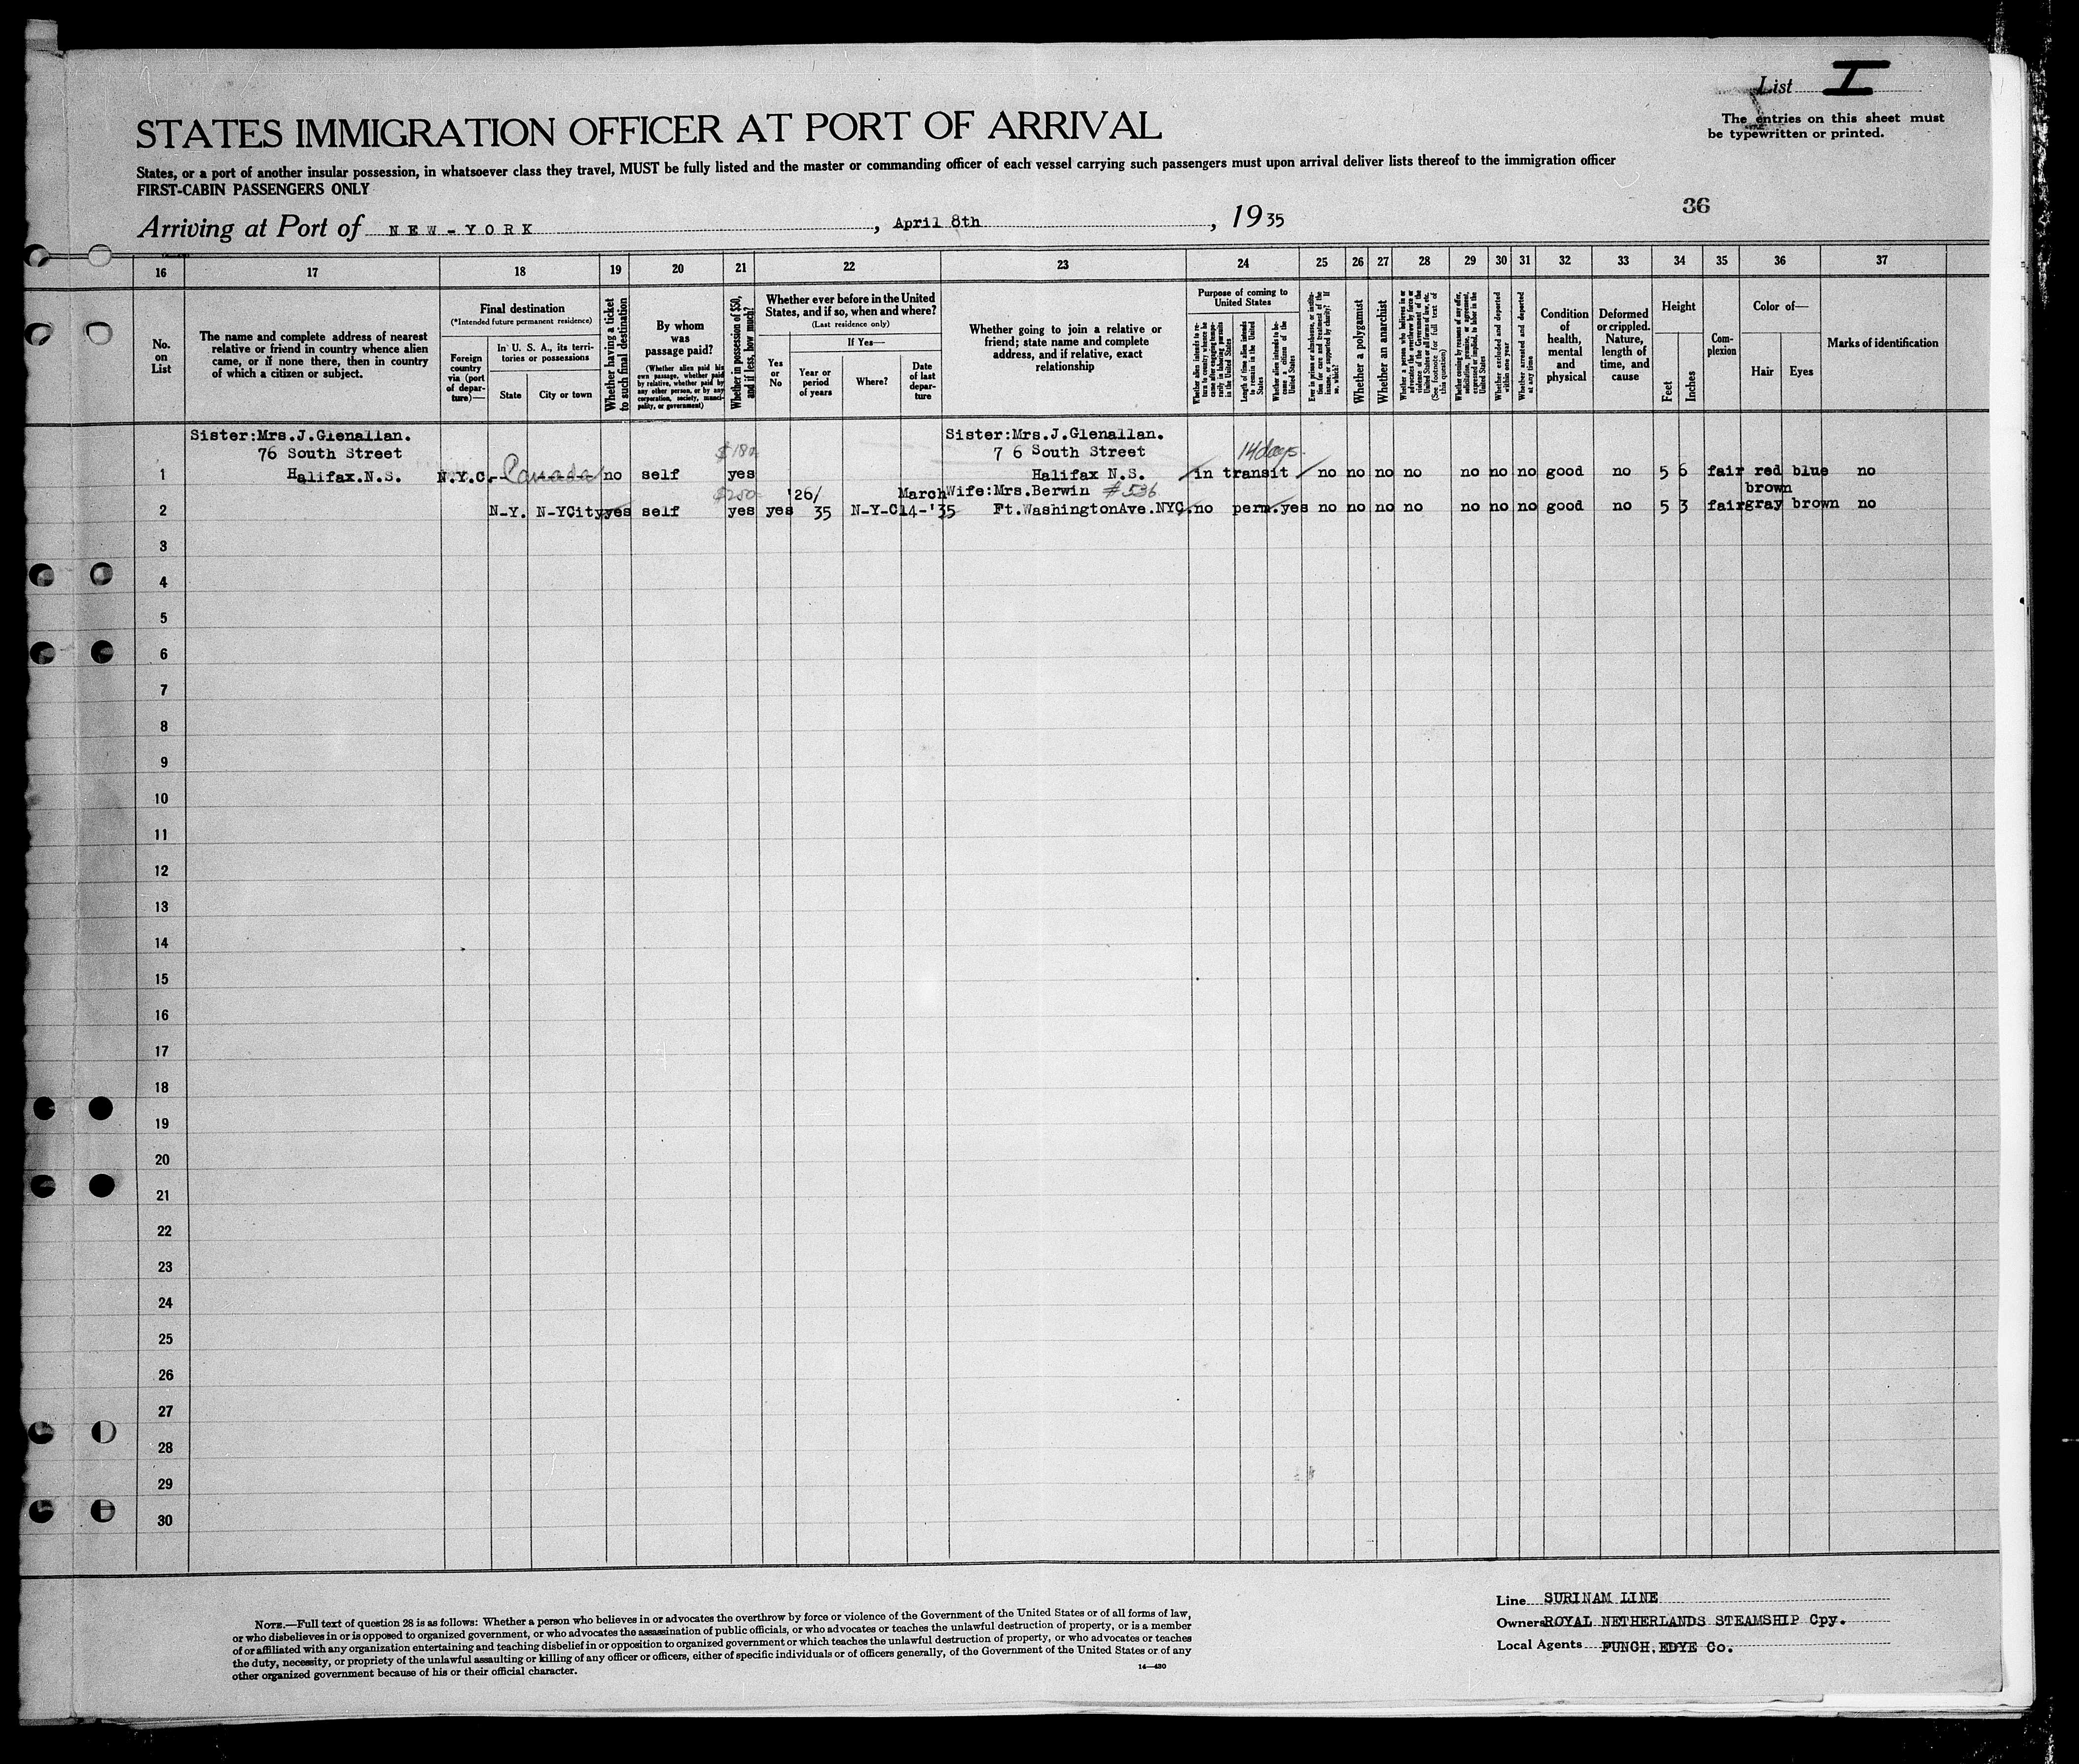 List I
The entries on this sheet must
be typewritten or printed.
STATES IMMIGRATION OFFICER AT PORT OF ARRIVAL
States, or a port of another insular possession, in whatsoever class they travel, MUST be fully listed and the master or commanding officer of each vessel carrying such passengers must upon arrival deliver lists thereof to the immigration officer
FIRST-CABIN PASSENGERS ONLY
36
Arriving at Port of NEW-YORK, April 8th, 1935
16 17 18 19 20 21 22 23 24 25 26 27 28 29 30 31 32 33 34 35 36 37
No.
on
List
The name and complete address of nearest
relative or friend in country whence alien
came, or if none there, then in country
of which a citizen or subject.
Final destination
(*Intended future permanent residence)
Foreign
country
via (port
of depar-
ture)—
In U. S. A., its terri-
tories or possessions
State
City or town
Whether having a ticket
to such final destination
By whom
was
passage paid?
(Whether alien paid his
own passage, whether paid
by relative, whether paid by
any other person, or by any
corporation, society, munici-
pality, or government)
Whether in possession of $50,
and if less, how much?
Whether ever before in the United
States, and if so, when and where?
(Last residence only)
Yes
or
No
If Yes—
Year or
period
of years
Where?
Date
of last
depar-
ture
Whether going to join a relative or
friend; state name and complete
address, and if relative, exact
relationship
Purpose of coming to
United States
Whether alien intends to re-
turn to country whence he
came after engaging tempo-
rarily in laboring pursuits
in the United States
Length of time alien intends
to remain in the United
States
Whether alien intends to be-
come a citizen of the
United States
Ever in prison or almshouse, or institu-
tion for care and treatment of the
insane, or supported by charity? If
so, which?
Whether a polygamist
Whether an anarchist
Whether a person who believes in or
advocates the overthrow by force or
violence of the Government of the
United States or all forms of law, etc.
(See footnote for full text of
this question)
Whether coming by reason of any offer,
solicitation, promise, or agreement,
expressed or implied, to labor in the
United States
Whether excluded and deported
within one year
Whether arrested and deported
at any time
Condition
of
health,
mental
and
physical
Deformed
or crippled.
Nature,
length of
time, and
cause
Height
Feet
Inches
Com-
plexion
Color of—
Hair
Eyes
Marks of identification
Sister:Mrs.J.Glenallan. Sister:Mrs.J.Glenallan.
76 South Street $180 7 6 South Street 14 days
1 Halifax.N.S. N.Y.C. Canada no self yes Halifax N.S. in transit no no no no no no no good no 5 6 fair red blue no
$250 '26/ March Wife:Mrs.Berwin #536 brown
2 N-Y. N-YCity yes self yes yes 35 N-Y-C 14-'35 Ft.WashingtonAve.NYC. no perm. yes no no no no no no no good no 5 3 fair gray brown no
3
4
5
6
7
8
9
10
11
12
13
14
15
16
17
18
19
20
21
22
23
24
25
26
27
28
29
30
NOTE.—Full text of question 28 is as follows: Whether a person who believes in or advocates the overthrow by force or violence of the Government of the United States or of all forms of law,
or who disbelieves in or is opposed to organized government, or who advocates the assassination of public officials, or who advocates or teaches the unlawful destruction of property, or is a member
of or affiliated with any organization entertaining and teaching disbelief in or opposition to organized government or which teaches the unlawful destruction of property, or who advocates or teaches
the duty, necessity, or propriety of the unlawful assaulting or killing of any officer or officers, either of specific individuals or of officers generally, of the Government of the United States or of any
other organized government because of his or their official character.
14—430
Line SURINAM LINE
Owners ROYAL NETHERLANDS STEAMSHIP Cpy.
Local Agents FUNCH,EDYE Co.